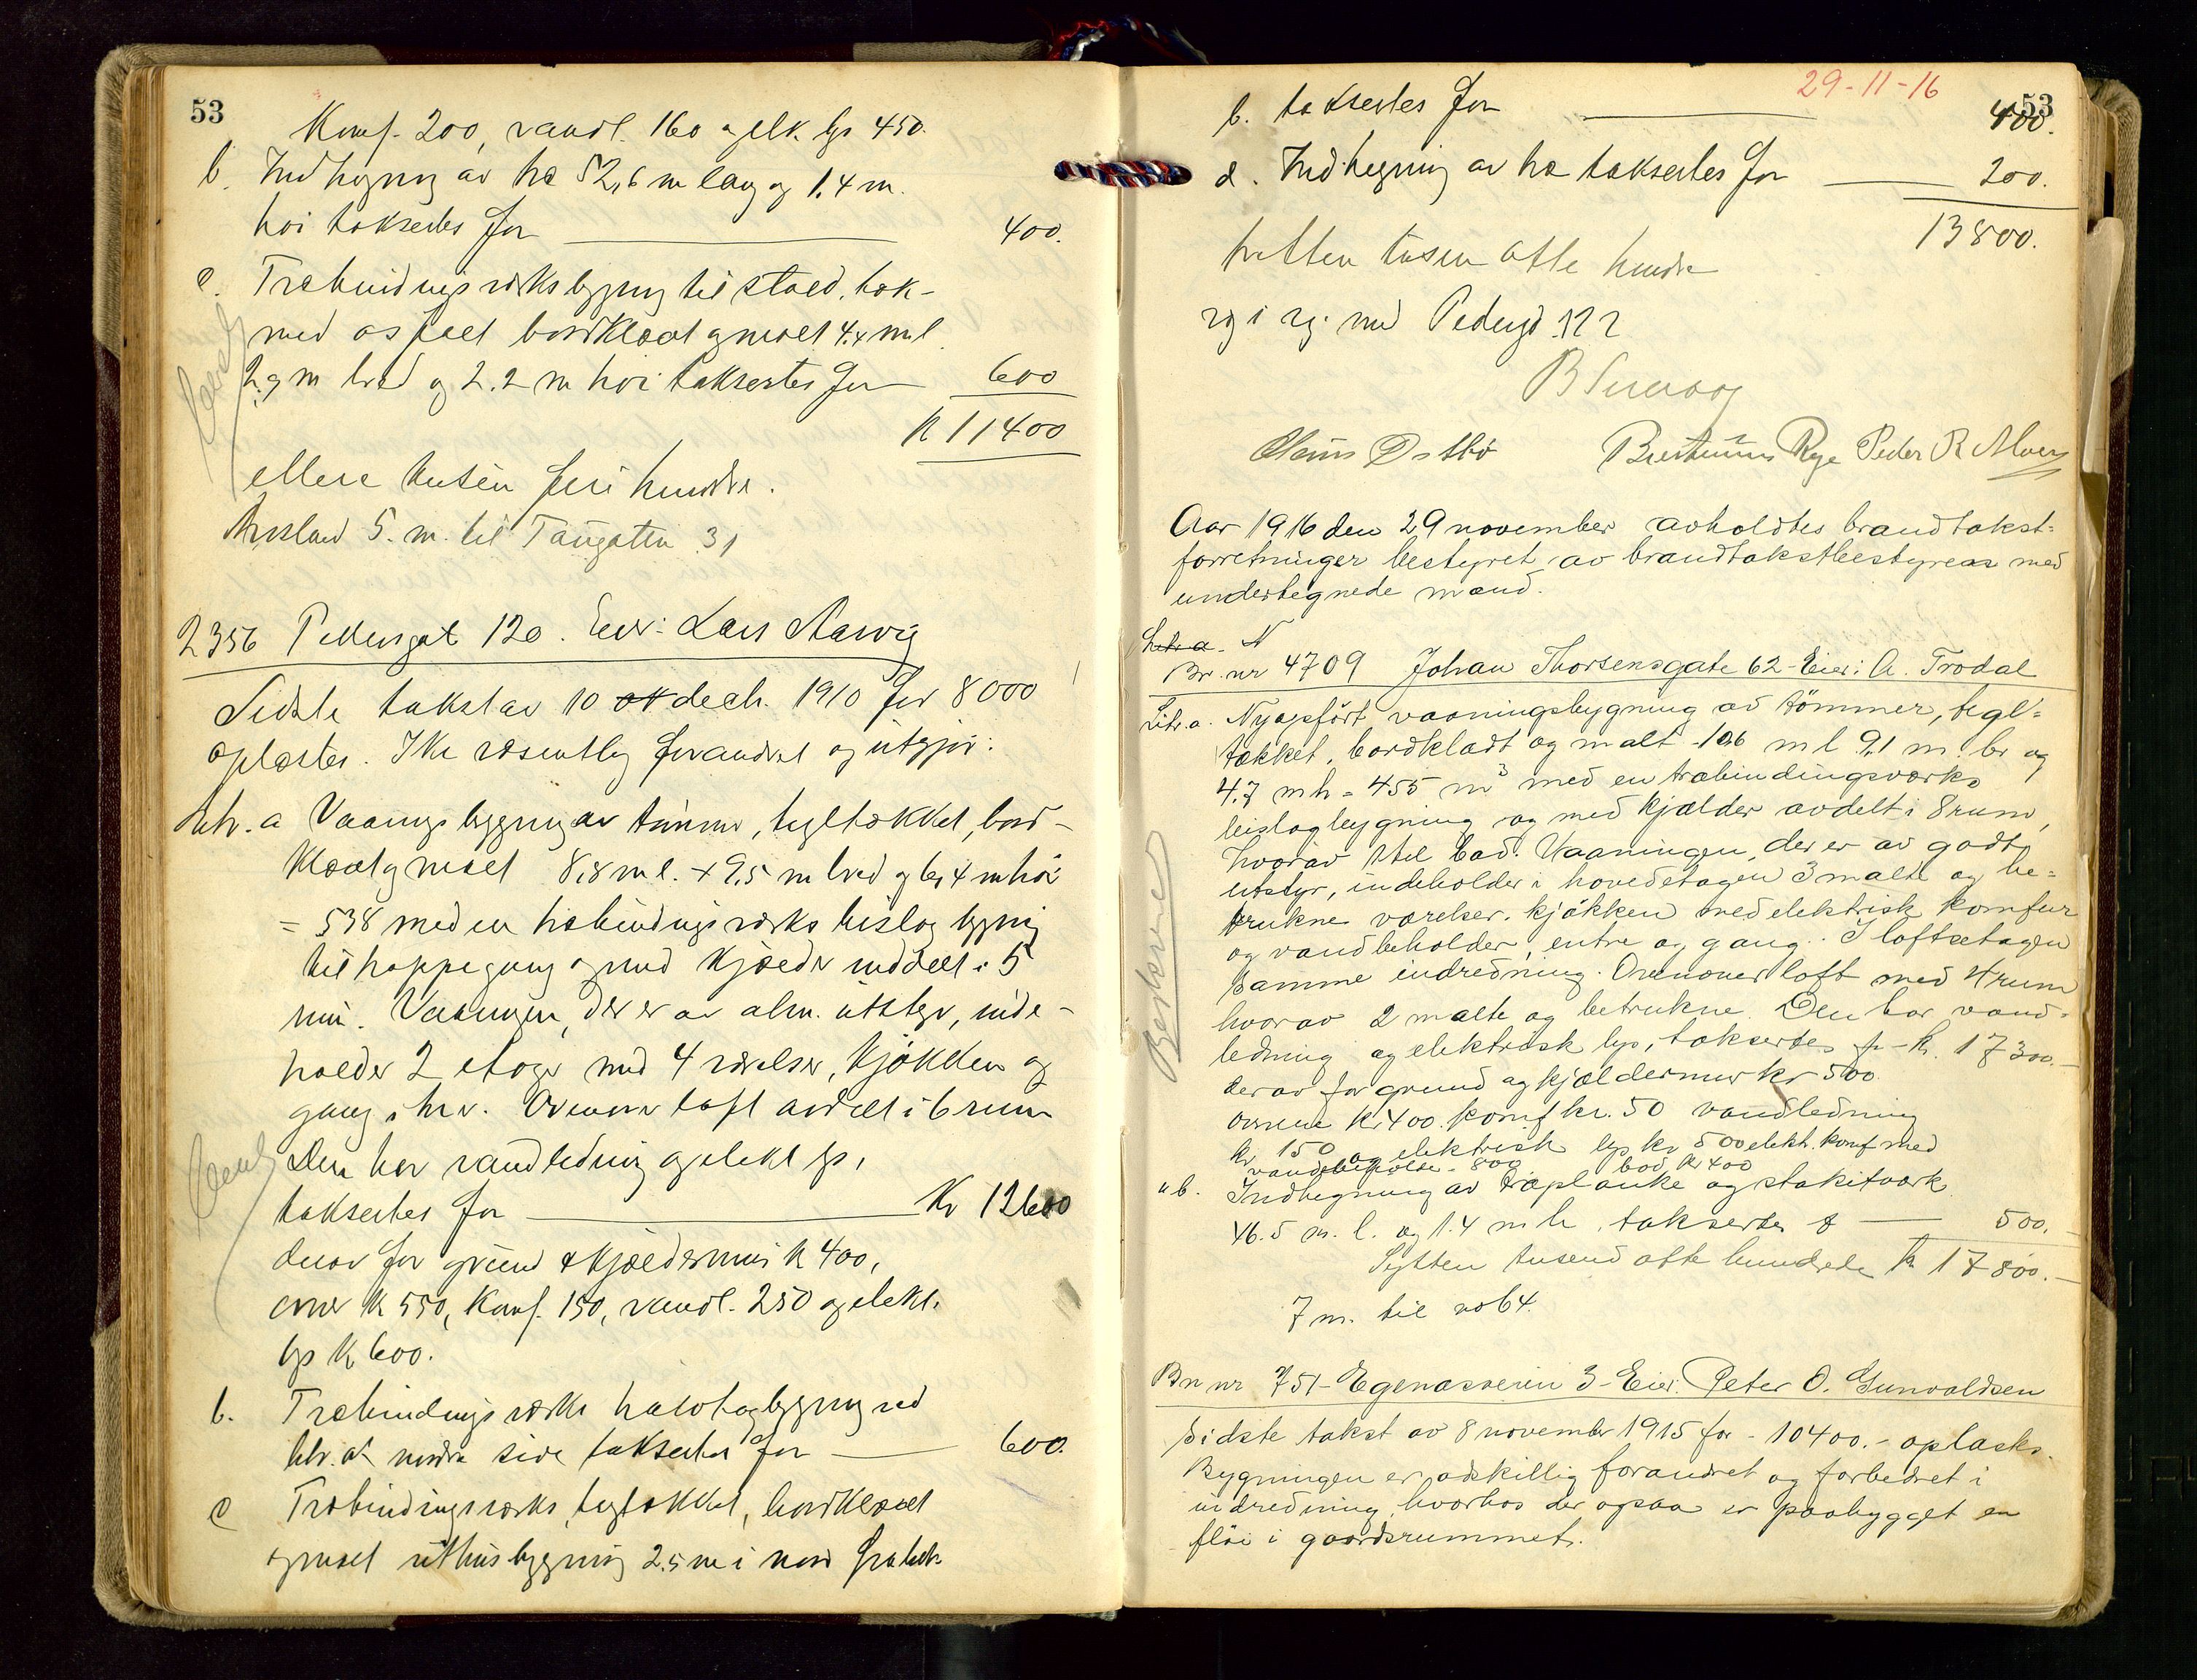 53
Komf. 200, vandl. 160 og elk. lys 450.
b. Indhegning av træ 52,6 m lang og 1.4 m.
høi takseres for 400.
c. Træbindingsverksbygning til stald, tak-
med asfalt bordklædt og malt 4.4 m l
2.9 m bred og 2.2 m høi takseres for 600
K 11400
elleve tusen fire hundre.
5. m. til Tangatten 31
2356 Pedersgat 120. Eier: Lars Aarvig
Sidste takst av 10 decb. 1910 for 8000
oplæstes. Ikke væsentlig forandret og utgjør:
Litr. a Vaaningsbygning av tømmer, tegltækket, bord-
klædt og malt 8,8 m l. + 9,5 m bred og 6,4 m høi
= 538 med en træbindingsverks bislagbygning
til trappegang og med kjælder inddelt i 5
rum. Vaaningen, der er av alm. utstyr, inde-
holder 2 etager med 4 værelser, kjøkken og
gang i hver. Ovenover loft avdelt i 6 rum
Den har vandledning og elekt lys,
takseres for Kr 12600
derav for grund & kjældermur k 400,
ovner k 550, Komf. 150, vandl. 250 og elekt.
lys k 600.
b. Træbindingsverks halvtagbygning ved
litr. a's nordre side takseres for 600.
c Træbindingsverks, tegltækket, bordklædt
og malt uthusbygning 2.5 m i nord fra
29-11-16
53
b. takseres for 400.
d. Indhegning av træ takseres for 200.
13800.
tretten tusen otte hundre
Pedersgd. 122
Hans Østbø Rye Peder R Alvær
Aar 1916 den 29 november avholdtes brandtakst-
forretninger bestyret av brandtakstbestyreren med
undertegnede mænd.
Litr a. N
Br. nr 4709 Johan Thorsensgate 62 - Eier: A. Trodal
Litr. a. Nyopført vaaningsbygning av tømmer, tegl-
tækket, bordklædt og malt 10,6 m l 9,1 m. br og
4.7 m h = 455 m³ med en træbindingsverks
bislagbygning og med kjælder avdelt i 8 rum,
hvorav 1 til bad. Vaaningen, der er av godt
utstyr, indeholder i hovedetagen 3 malte og be-
trukne værelser, kjøkken med elektrisk komfur
og vandbeholder, entre og gang. I loftsetagen
samme indredning. Ovenover loft med 4 rum
hvorav 2 malte og betrukne. Den har vand-
ledning og elektrisk lys, takseres f- k. 17300.-
derav for grund og kjældermur kr 500.
ovnene kr 400. komf kr. 50 vandledning
kr. 150 og elektrisk lys kr 500 elekt. komf med
vandbeholder - 800 bad kr 400
" b. Indhegning av træplanke og stakitverk
46.5 m. l. og 1.4 m h. takseres f 500.
Sytten tusend otte hundrede k 17800.-
7 m. til no 64.
Bn nr 751 - Egenæsveien 3 - Eier: Peter O. Gunvaldsen
Sidste takst av 8 november 1915 for - 10400.- oplæstes.
Bygningen er adskillig forandret og forbedret i
indredning, hvorhos der ogsaa er paabygget en
fløi i gaardsrummet.